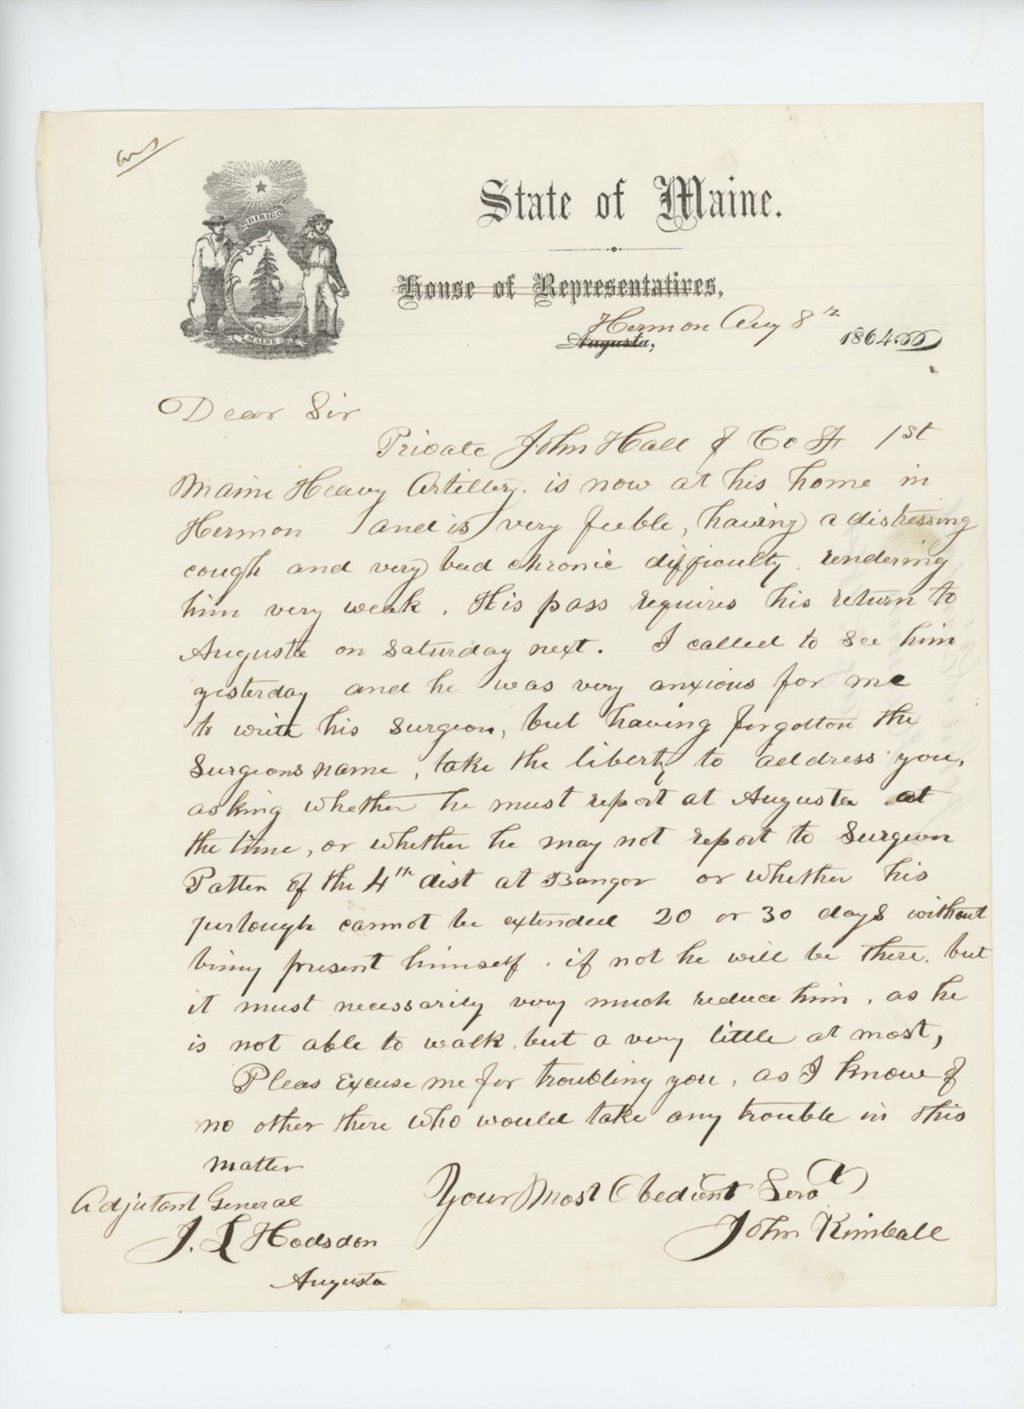 ans
DIRIGO
MAINE
State of Maine.
House of Representatives,
Hermon Aug 8th
Augusta, 1864
Dear Sir
Private John Hall of Co F 1st
Maine Heavy Artillery. is now at his home in
Hermon and is very feeble, having a distressing
cough and very bad chronic difficulty, rendering
him very weak. His pass requires his return to
Augusta on Saturday next. I called to see him
yesterday and he was very anxious for me
to write his surgeon, but having forgotton the
Surgeons name, take the liberty to address you,
asking whether he must report at Augusta at
the time, or whether he may not report to Surgeon
Patten of the 4th dist at Bangor or whether his
furlough cannot be extended 20 or 30 days without
being present himself. if not he will be there, but
it must necessarily very much reduce him, as he
is not able to walk, but a very little at most,
Pleas Excuse me for troubling you, as I know of
no other there who would take any trouble in this
matter
Your Most Obedient Servt
John Kimball
Adjutant General
J. L Hodsdon
Augusta